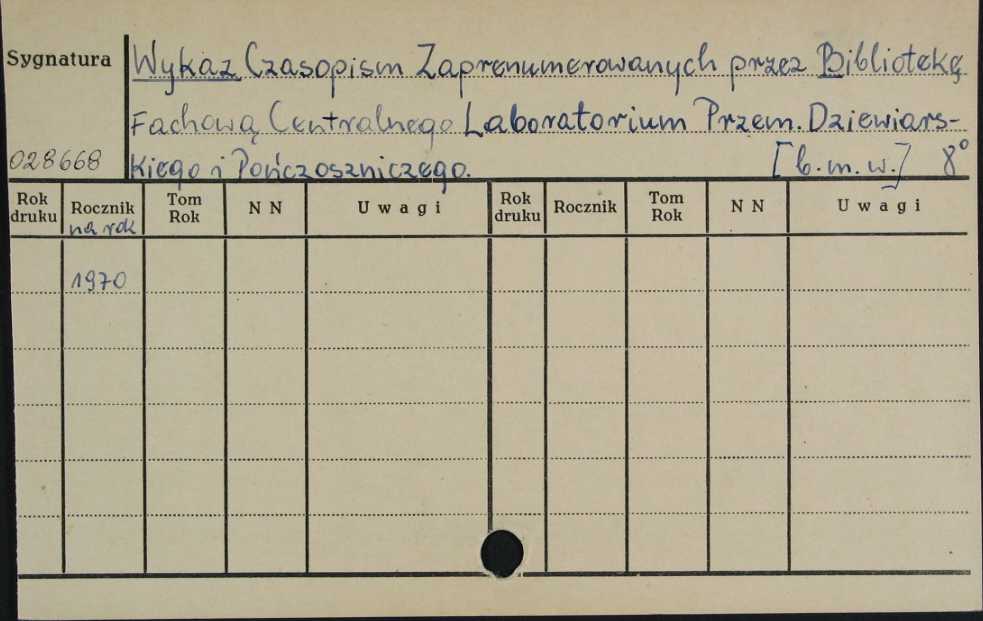 Sygnatura
Wykaz Czasopism Zaprenumerowanych przez Bibliotekę
Fachową Centralnego Laboratorium Przem. Dziewiars-
028668
kiego i Pończoszniczego. [b.m.w.] 8°
Rok druku Rocznik na rok Tom Rok N N Uwagi Rok druku Rocznik Tom Rok N N Uwagi
1970